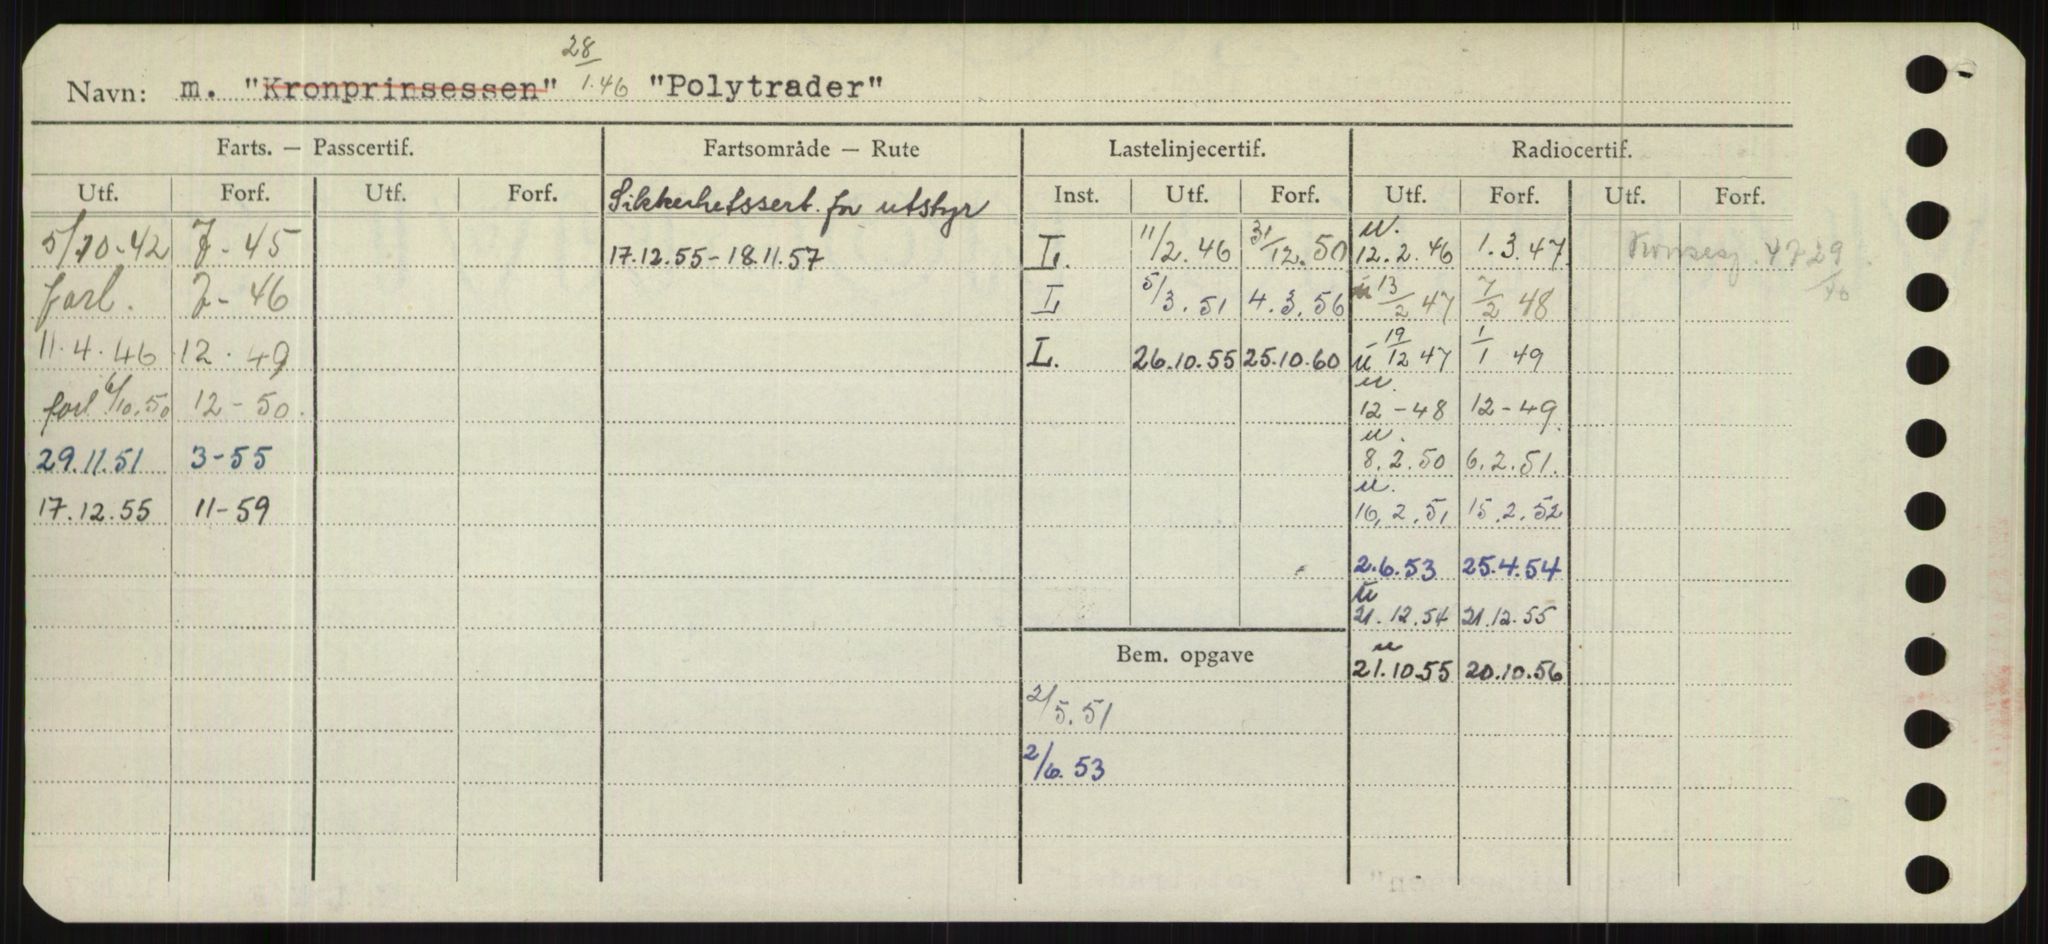 28/1.46
Navn: m. "Kronprinsessen" "Polytrader"
Farts. — Passcertif. Fartsområde — Rute Lastelinjecertif. Radiocertif.
Utf. Forf. Utf. Forf. Sikkerhetssert. for utstyr Inst. Utf. Forf. Utf. Forf. Utf. Forf.
5/10-42 7-45 17.12.55-18.11.57 L. 11/2.46 31/12.50 u. 12.2.46 1.3.47 29
forl. 7-46 L 5/3.51 4.3.56 u 13/2 47 7/2 48
11.4.46 12.49 L. 26.10.55 25.10.60 u 19/12 47 1/1 49
forl 6/10.50 12-50. u. 12-48 12-49
29.11.51 3-55 u. 8.2.50 6.2.51.
17.12.55 11-59 u. 16.2.51 15.2.52
2.6.53 25.4.54
u 21.12.54 21.12.55
Bem. opgave u 21.10.55 20.10.56
2/5.51
2/6.53